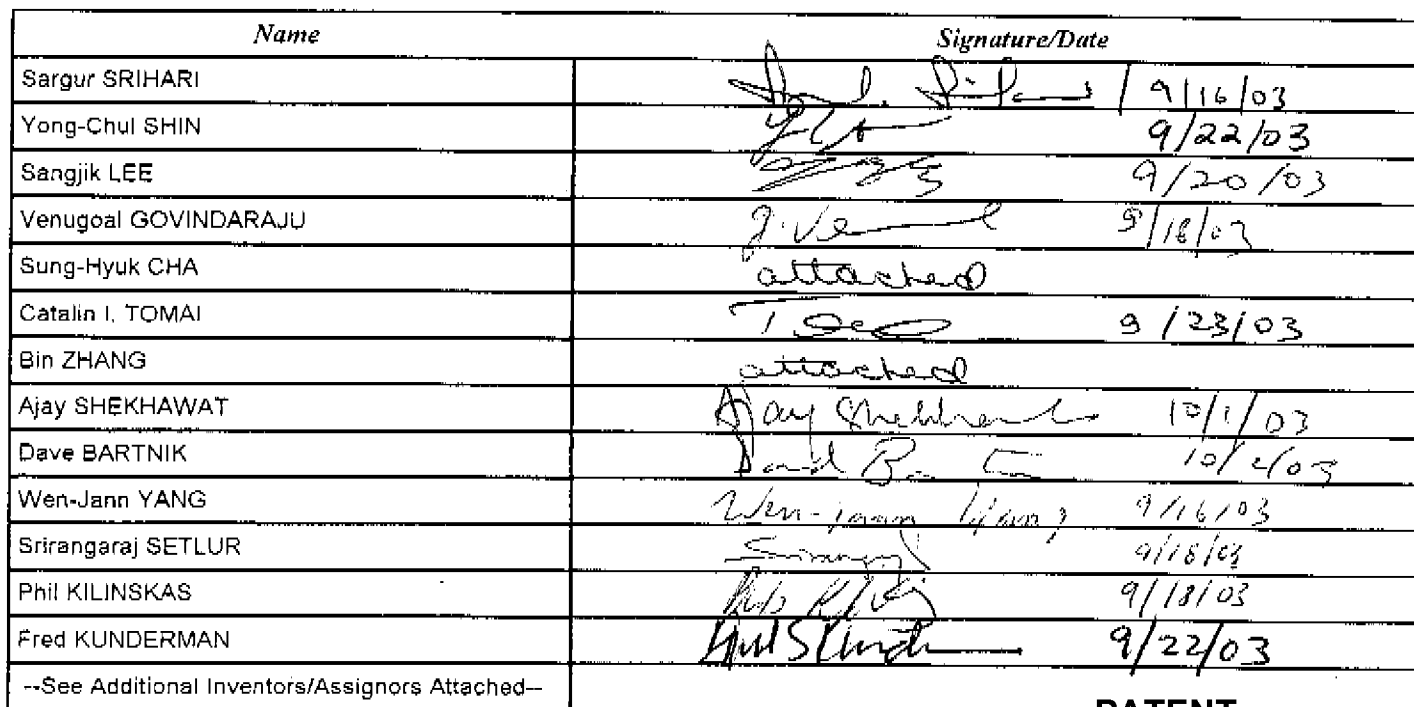 Name Signature/Date
Sargur SRIHARI 9/16/03
Yong-Chul SHIN 9/22/03
Sangjik LEE 9/20/03
Venugoal GOVINDARAJU 9/18/03
Sung-Hyuk CHA attached
Catalin I. TOMAI 9/23/03
Bin ZHANG attached
Ajay SHEKHAWAT Ajay Shekhawat 10/1/03
Dave BARTNIK 10/2/03
Wen-Jann YANG Wen-jann Yang 9/16/03
Srirangaraj SETLUR 9/18/03
Phil KILINSKAS 9/18/03
Fred KUNDERMAN 9/22/03
--See Additional Inventors/Assignors Attached--
PATENT